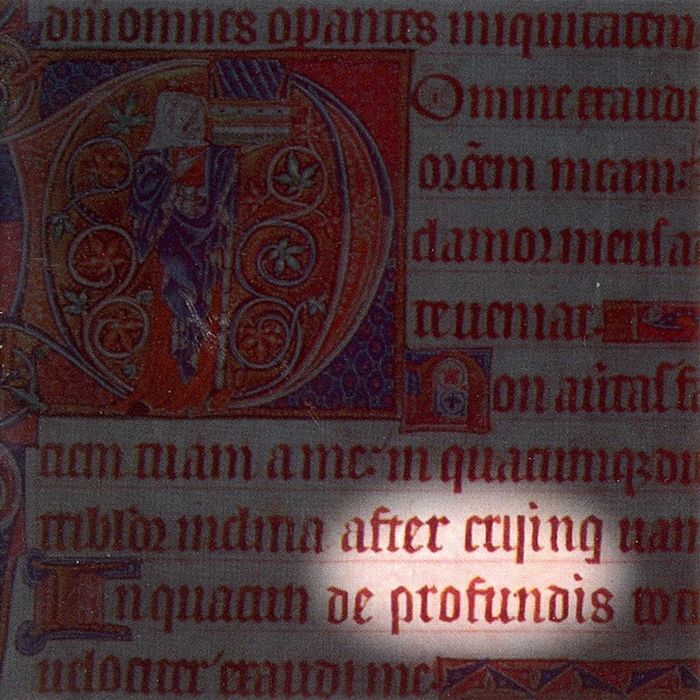 omnes opantes iniquitatem
Omine exaudi
orõem meam:
clamor meus a
te ueniat.
Non
ciem tuam a me: in quacumqz di
inclina after crying uam
In quacun de profundis
uelociter exaudi me